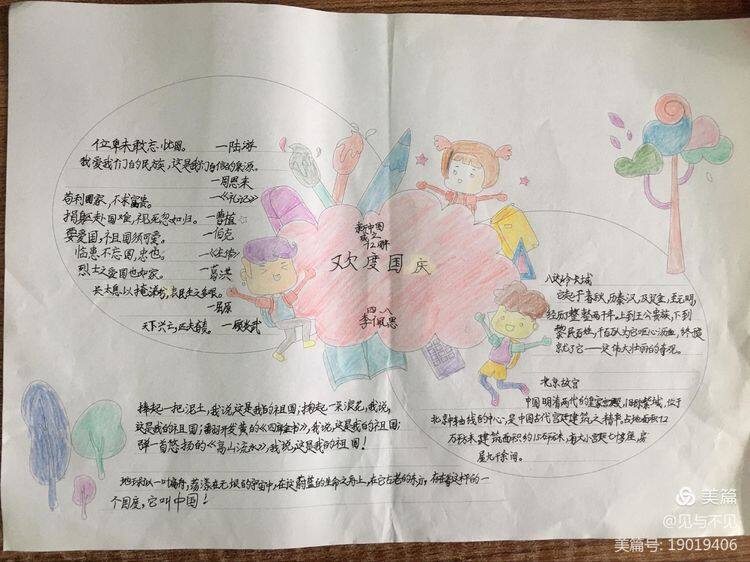 位卑未敢忘忧国。 —陆游
我爱我们的民族,这是我们自信的来源。
—周恩来
苟利国家,不求富贵。 —《礼记》
捐躯赴国难,视死忽如归。 —曹植
要爱国,祖国须可爱。 —伯克
临患不忘国,忠也。 —《左传》
烈士之爱国也如家。 —葛洪
长太息以掩涕兮,哀民生之多艰。
—屈原
天下兴亡,匹夫有责。 —顾炎武
新中国
成立
72周年
欢度国庆
四.八
李佩思
八达岭长城
它起于春秋,历秦汉,及辽金,至元明,
经历整整两千年。上到王公贵族,下到
黎民百姓,千百万为它呕心沥血,终
就了它——这伟大壮丽的奇观。
北京故宫
中国明清两代的皇家宫殿,旧称紫禁城,位于
北京中轴线的中心,是中国古代宫廷建筑之精华。占地面积72
万平方米,建筑面积约15万平方米,有大小宫殿七十多座,房
屋九千余间。
捧起一把泥土,我说,这是我的祖国;掬起一朵浪花,我说,
这是我的祖国;翻开发黄的《四库全书》,我说,这是我的祖国;
弹一首悠扬的《高山流水》,我说,这是我的祖国!
地球似一叶扁舟,荡漾在无垠的宇宙中,在这蔚蓝的生命之舟上,在它古老的东方,存在着这样的一
个国度,它叫中国!
美篇
@见与不见
美篇号: 19019406